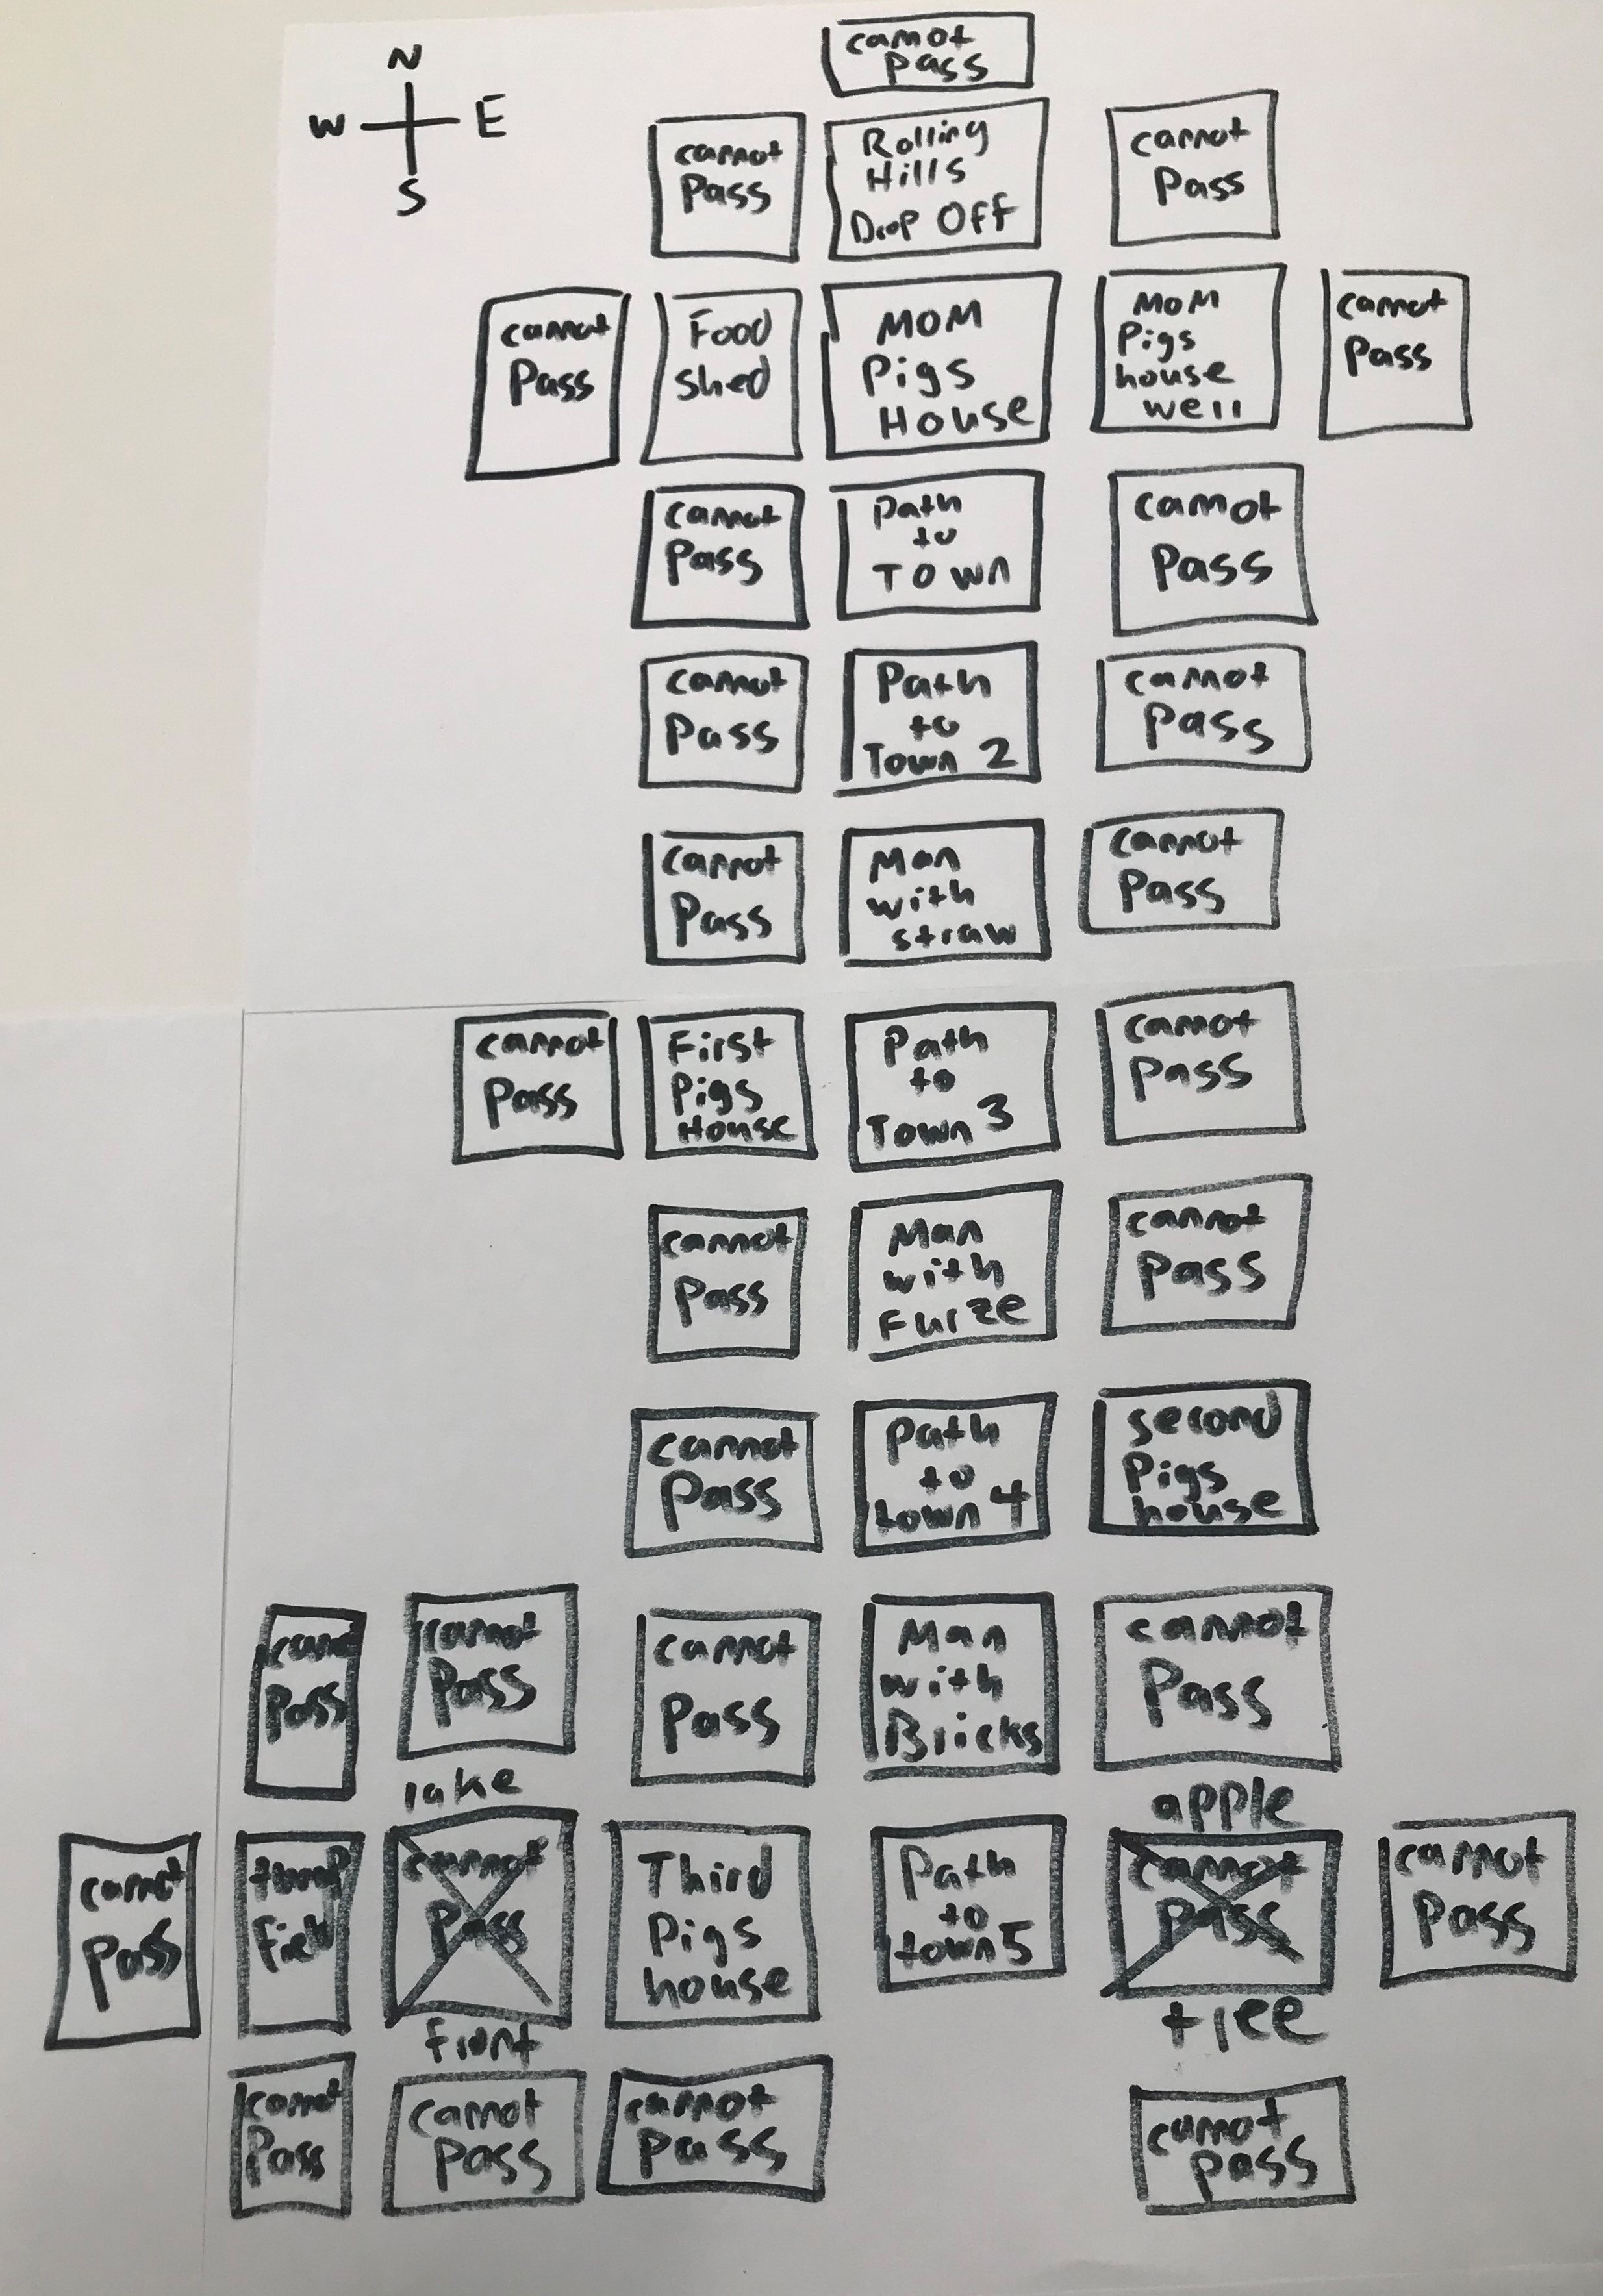 N
W E
S
cannot
pass
cannot
Pass
Rolling
Hills
Drop Off
cannot
Pass
cannot
Pass
Food
shed
MOM
Pigs
House
MOM
Pigs
house
well
cannot
Pass
cannot
Pass
Path
to
TOWN
cannot
Pass
cannot
Pass
Path
to
Town 2
cannot
Pass
cannot
Pass
Man
with
straw
cannot
Pass
cannot
Pass
First
Pigs
House
Path
to
Town 3
cannot
Pass
cannot
Pass
Man
with
Furze
cannot
Pass
cannot
Pass
Path
to
town 4
second
Pigs
house
Pass
cannot
Pass
cannot
Pass
Man
with
Bricks
cannot
Pass
lake
apple
cannot
Pass
Field
cannot
Pass
front
Third
Pigs
house
Path
to
town 5
cannot
Pass
tree
cannot
Pass
cannot
Pass
cannot
Pass
cannot
Pass
cannot
Pass